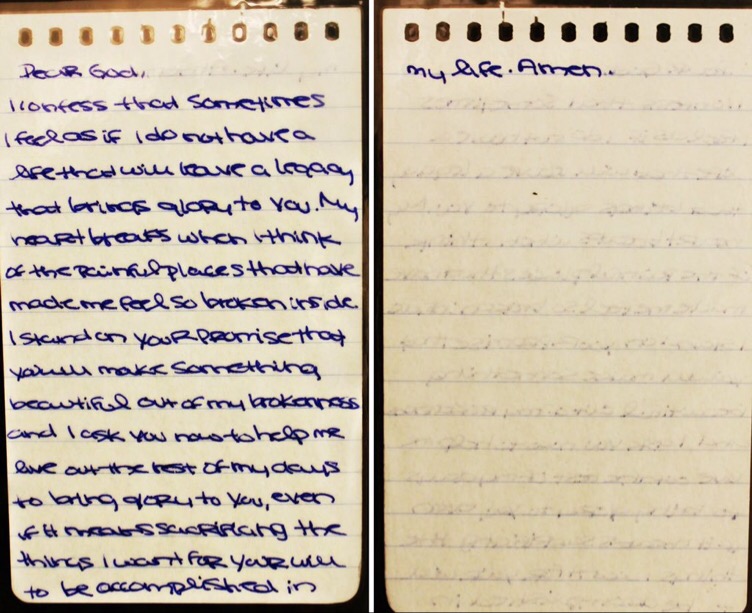 Dear God,
I confess that sometimes
I feel as if I do not have a
life that will leave a legacy
that brings glory to You. My
heart breaks when I think
of the painful places that have
made me feel so broken inside.
I stand on Your promise that
You will make something
beautiful out of my brokenness
and I ask You now to help me
live out the rest of my days
to bring glory to You, even
if it means sacrificing the
things I want for Your will
to be accomplished in
my life. Amen.